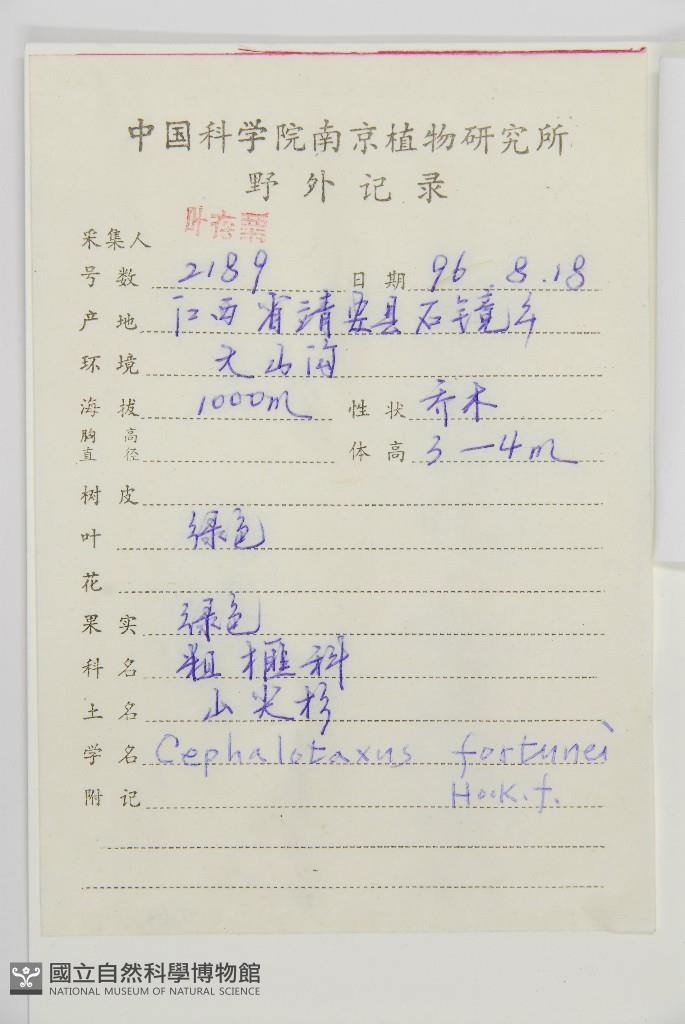 中国科学院南京植物研究所
野外记录
采集人 叶存粟
号数 2189 日期 96.8.18
产地 江西省靖安县石镜乡
环境
海拔 1000m 性状 乔木
胸高直径 体高 3—4m
树皮
叶 绿色
花
果实 绿色
科名 粗榧科
土名 山尖杉
学名 Cephalotaxus fortunei
附记 Hook.f.
國立自然科學博物館
NATIONAL MUSEUM OF NATURAL SCIENCE